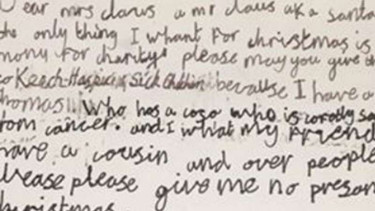 ear mrs claus a mr claus aka santa
he only thing I whant for christmas is
mony for charity. please may you give
to Keech-Hospice Sick Children because I have a
homas who has a who is
rom cancer. and I what my friend
have a cousin and over people
lease please give me no presen
hristmas